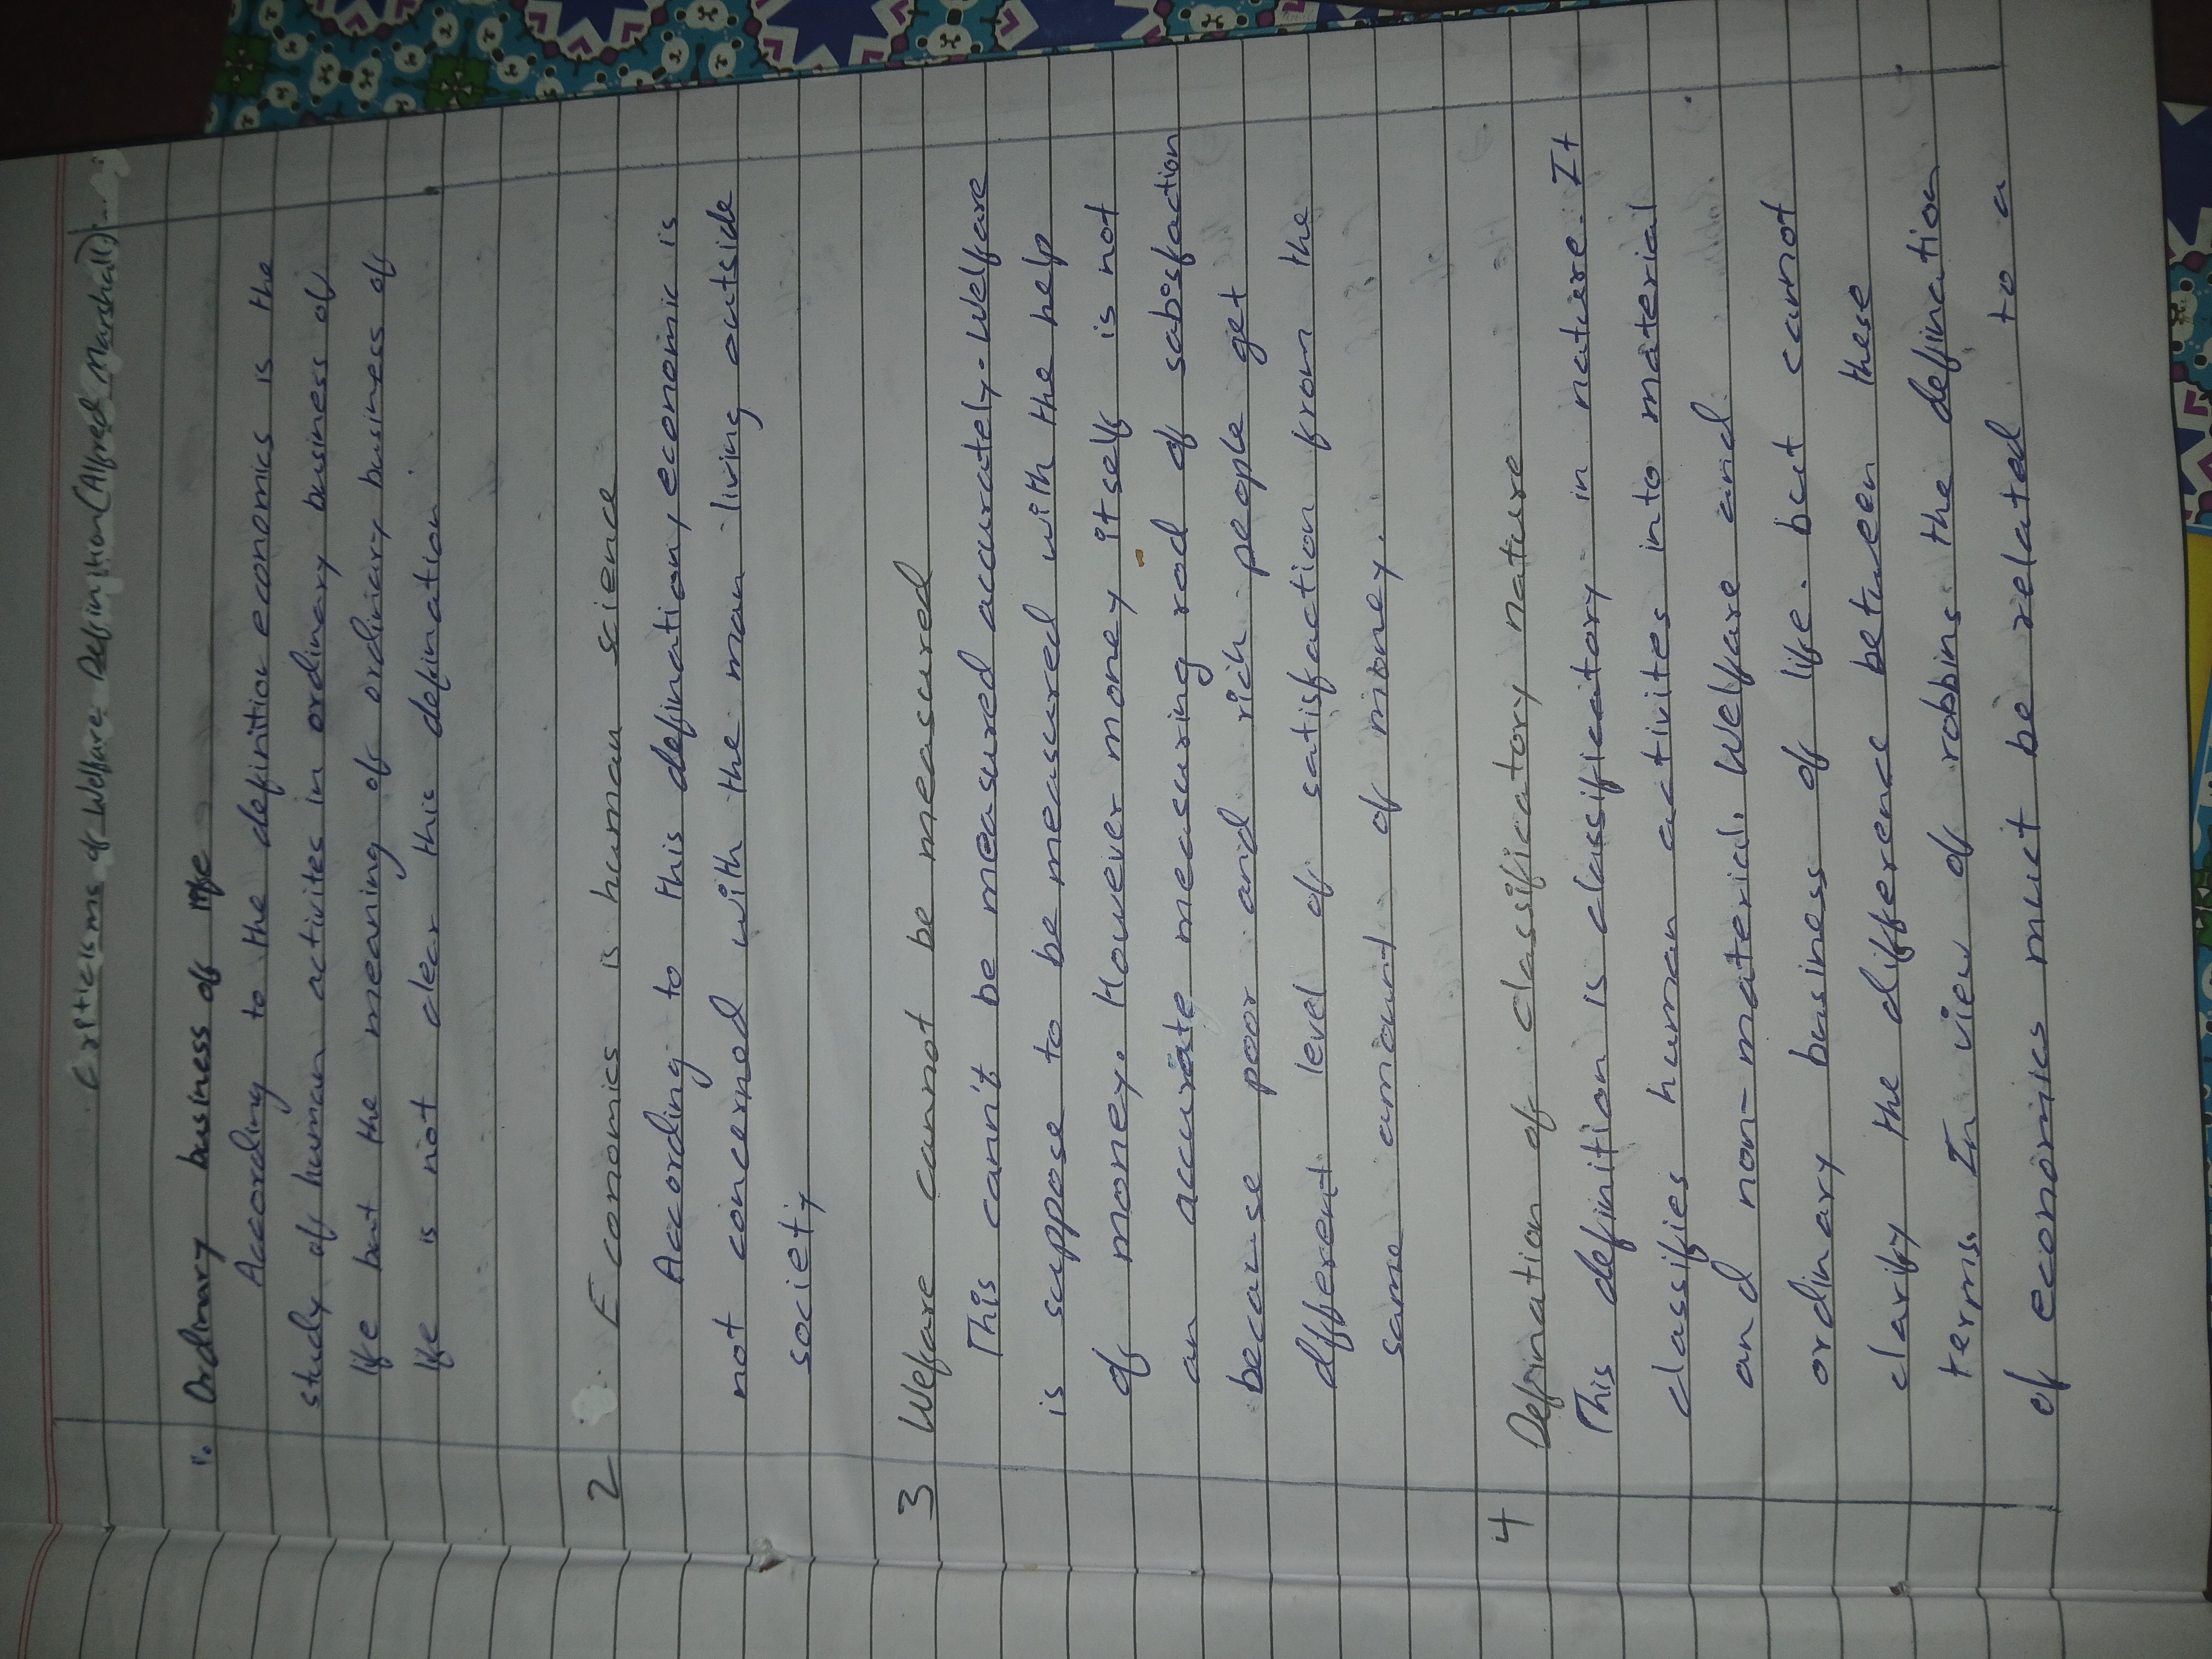 Criticisms of Welfare Definition (Alfred Marshall):-
1. Ordinary business of life
According to the definition economics is the
study of human activites in ordinary business of
life but the meaning of ordiniary business of
life is not clear this defination.
2 Economics is human science
According to this defination, economic is
not concerned with the man living outside
society
3 Welfare cannot be measured
This cann't be measured accurately. Welfare
is suppose to be measured with the help
of money. However money itself is not
an accurate measuring rod of sabisfaction
because poor and rich people get
different level of satisfaction from the
same amount of money.
4 Defination of classificatory nature
This definition is classificatory in nature. It
classifies human activites into material
and non-material. Welfare and
ordinary business of life. but cannot
clarify the difference between these
terms. In view of robbins the defination
of economics must be related to a